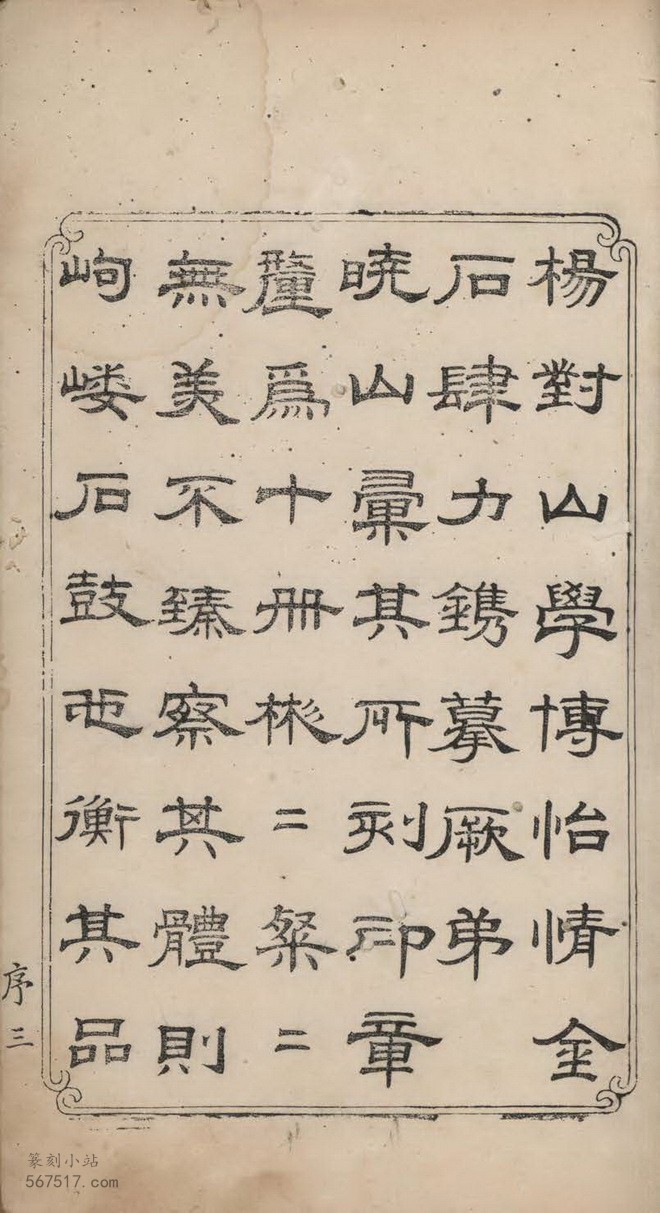 楊對山學博怡情金
石肆力鐫摹厥弟
曉山彙其所刻印章
釐爲十册彬二粲二
無美不臻察其體則
岣嶁石鼓也衡其品
序三
篆刻小站
567517.com